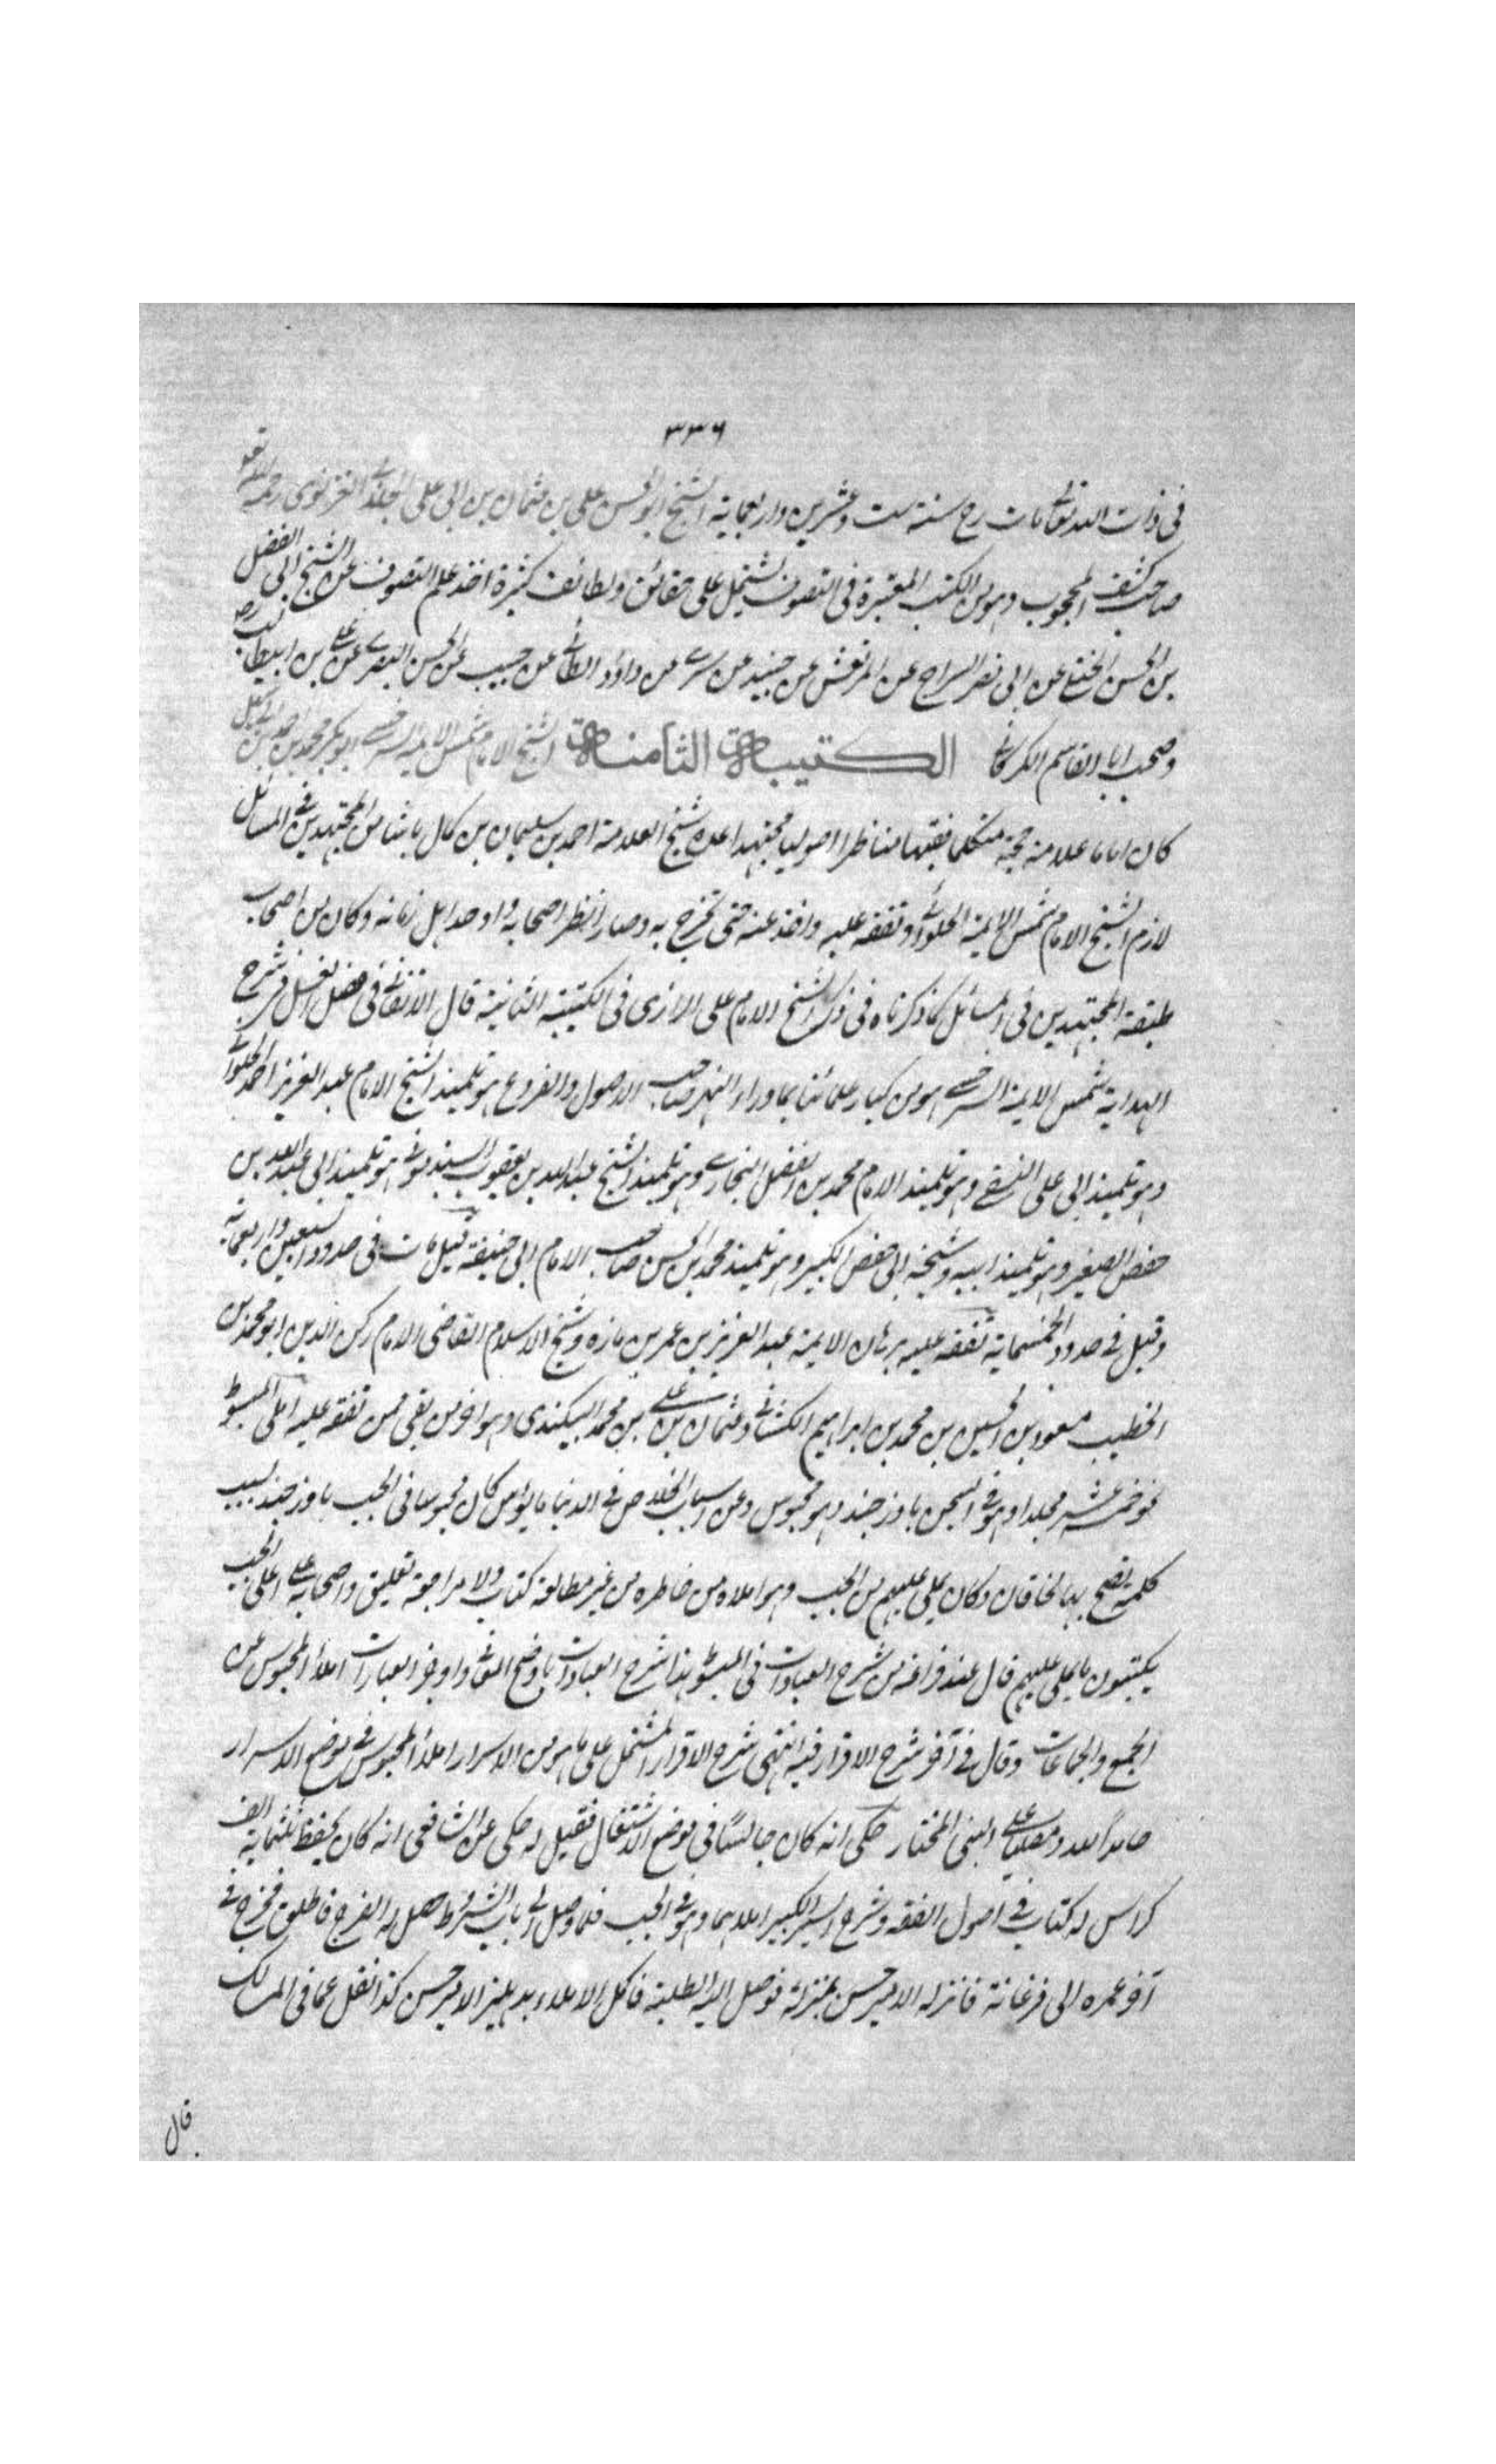 ٣٣٦
فى ذات الله تعالى مات رح سنة ست وعشرين واربعماية الشيخ ابو الحسن على بن عثمان بن ابى على الجلابى الغزنوى رحمه الله تعو
صاحب كشف المحجوب وهو من الكتب المعتبرة فى التصوف يشتمل على حقائق ولطائف كثيرة اخذ علم التصوف عن الشيخ ابى الفضل
بن الحسن الختلى عن ابى نصر السراج عن المرتعش عن جنيد عن سرى عن داؤد الطائى عن حبيب عن الحسن البصرى عن على بن ابيطالب رضه
وصحب ابا القاسم الكركانى الكتيبة الثامنة الشيخ الامام شمس الايمة السرخسى ابو بكر محمد بن احمد بن ابى سهل
كان اماما علامة حجة متكلما فقيها مناظرا اصوليا مجتهدا عده شيخ العلامة احمد بن سليمان بن كمال باشا من المجتهدين فى المسائل
لازم الشيخ الامام شمس الايمة الحلوائى وتفقه عليه واخذ عنه حتى تخرج به وصار انظر اصحابه واوحد اهل زمانه وكان من اصحاب
طبقة المجتهدين فى المسائل كما ذكرناه فى ذكر الشيخ الامام على الرازى فى الكتيبة الثانية قال الاتقانى فى فصل الغسل فى شرح
الهداية شمس الايمة السرخسى هو من كبار علمائنا بماوراء النهر صاحب الاصول والفروع هو تلميذ الشيخ الامام عبد العزيز احمد الحلوائى
وهو تلميذ ابى على النسفى وهو تلميذ الامام محمد بن الفضل البخارى وهو تلميذ الشيخ عبد الله بن يعقوب السبذمونى هو تلميذ ابى عبد الله بن
حفص الصغير وهو تلميذ ابيه وشيخه ابى حفص الكبير وهو تلميذ محمد بن الحسن صاحب الامام ابى حنيفة قيل مات فى حدود التسعين واربعماية
وقيل فى حدود الخمسماية تفقه عليه برهان الايمة عبد العزيز بن عمر بن مازه وشيخ الاسلام القاضى الامام ركن الدين ابو محمد بن
الخطيب مسعود بن الحسين بن محمد بن ابراهيم الكشانى وعثمان بن على بن محمد البيكندى وهو اخر من بقى ممن تفقه عليه املى المبسوط
نحو خمسة عشر مجلدا وهو فى السجن باوزجند وهو محبوس وعن اسباب الخلاص فى الدنيا مايؤس كان محبوسا فى الجب باوزجند بسبب
كلمة نصح بها الخاقان وكان يملى عليهم من الجب وهو املاه من خاطره من غير مطالعة كتاب ولا مراجعة تعليق واصحابه على اعلى الجب
يكتبون ما يملى عليهم قال عند فراغه من شرح العبادات فى المبسوط هذا شرح العبادات باوضح المعانى واوجز العبارات املأ المحبوس عن
الجمع والجماعات وقال فى آخر شرح الاقرار فيه انتهى شرح الاقرار المشتمل على ما هو من الاسرار املأ المحبوس فى موضع الاسرار
حامداً لله ومصليا على النبى المختار حكى انه كان جالسًا فى موضع الاشتغال فقيل له حكى عن الشافعى انه كان يحفظ ثلثماية الف
كراس له كتاب فى اصول الفقه وشرح السير الكبير املاهما وهو فى الجب فلما وصل الى باب الشروط حصل له الفرج فاطلق فخرج فى
آخر عمره الى فرغانة فانزله الامير حسن بمنزله فوصل اليه الطلبة فاكمل الاملاء بدهليز الامير حسن كذا نقل عما فى المسالك
قال